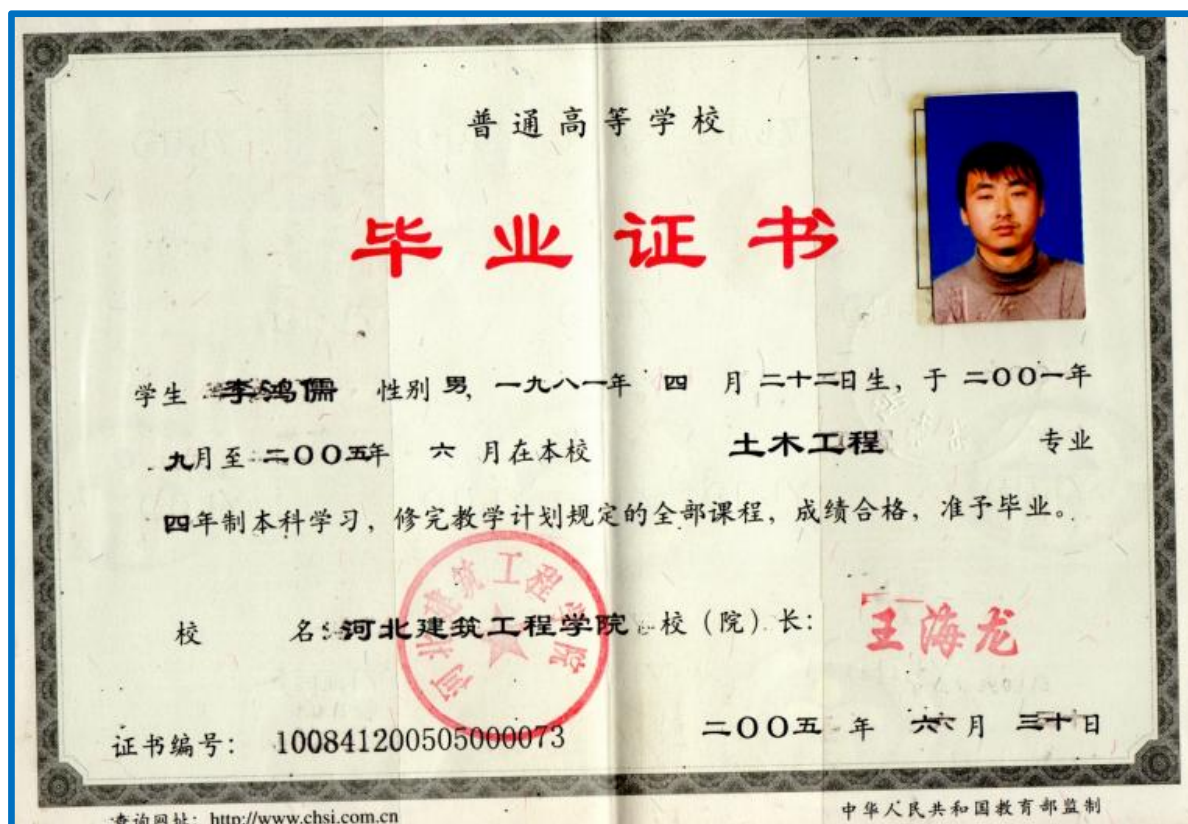 普通高等学校
毕业证书
学生 李鸿儒 性别 男, 一九八一年 四 月 二十二日生, 于 二〇〇一年
九月至 二〇〇五年 六 月在本校 土木工程 专业
四年制本科学习, 修完教学计划规定的全部课程, 成绩合格, 准予毕业。
河北建筑工程学院
校 名: 河北建筑工程学院 校(院)长: 王海龙
证书编号: 100841200505000073 二〇〇五 年 六 月 三十日
查询网址: http://www.chsi.com.cn 中华人民共和国教育部监制